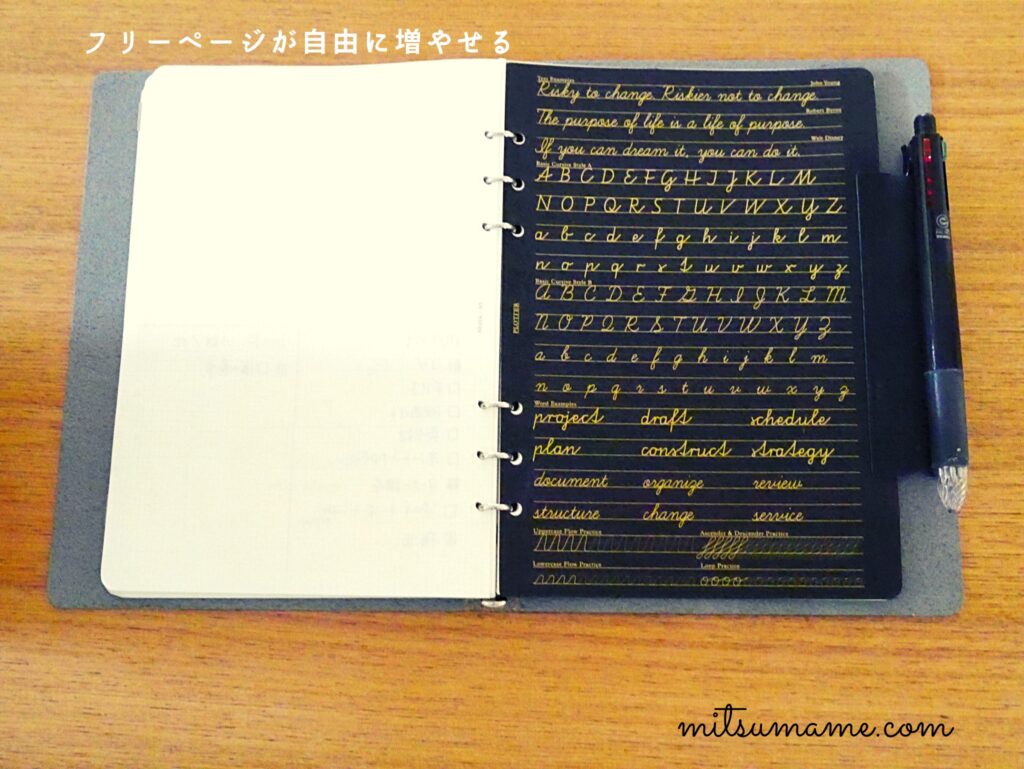 フリーページが自由に増やせる
Text Examples
John Young
Risky to change. Riskier not to change.
Robert Byrne
The purpose of life is a life of purpose.
Walt Disney
If you can dream it, you can do it.
Basic Cursive Style A
A B C D E F G H I J K L M
N O P Q R S T U V W X Y Z
a b c d e f g h i j k l m
n o p q r s t u v w x y z
Basic Cursive Style B
A B C D E F G H I J K L M
N O P Q R S T U V W X Y Z
a b c d e f g h i j k l m
n o p q r s t u v w x y z
Word Examples
project draft schedule
plan construct strategy
document organize review
structure change service
Uppercase Flow Practice
Ascender & Descender Practice
Lowercase Flow Practice
Loop Practice
PLOTTER
mitsumame.com